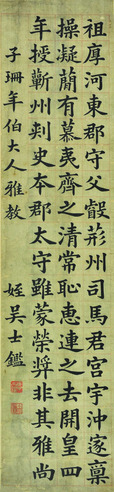 祖㢆河東郡守父㲉荊州司馬君宮宇沖邃稟
操凝蕳有慕夷齊之清常恥惠連之去開皇四
年授蘄州刺史本郡太守雖蒙榮獎非其雅尚
子珊年伯大人雅教
姪吳士鑑